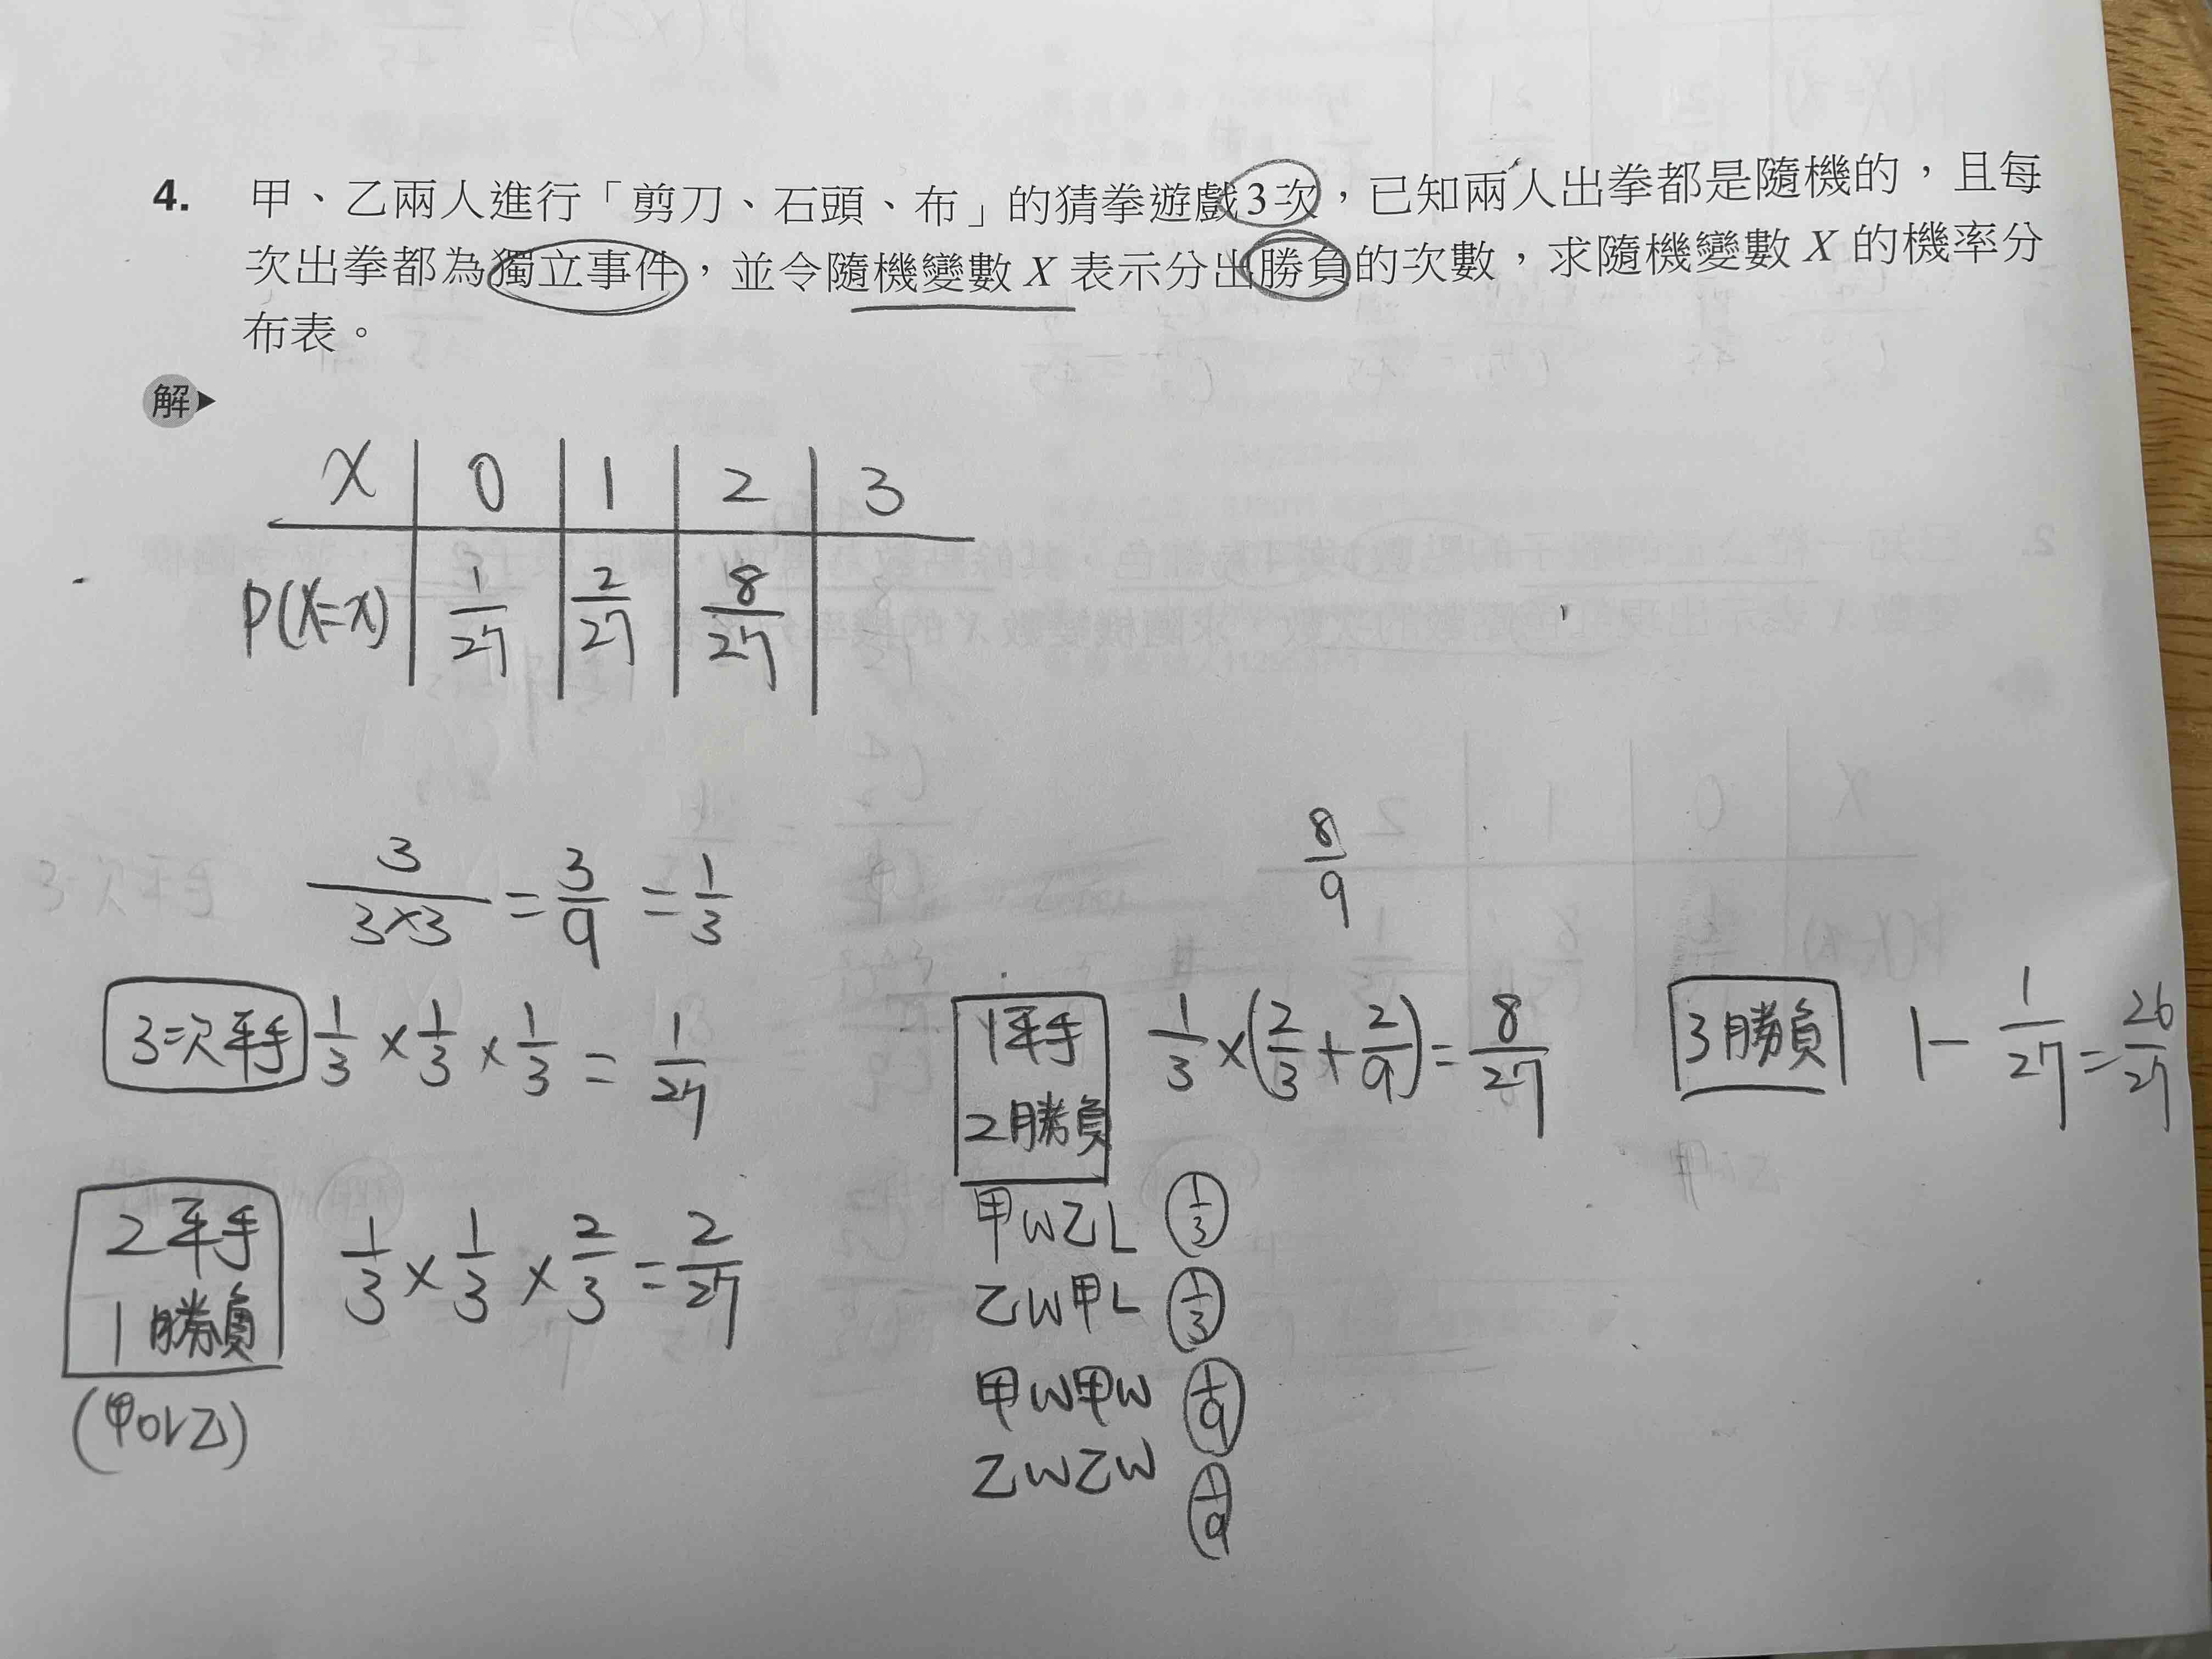 4. 甲、乙兩人進行「剪刀、石頭、布」的猜拳遊戲3次,已知兩人出拳都是隨機的,且每
次出拳都為獨立事件,並令隨機變數 X 表示分出勝負的次數,求隨機變數 X 的機率分
布表。
解
X | 0 | 1 | 2 | 3
P(X=x) | 1/27 | 2/27 | 8/27 |
3/(3×3) = 3/9 = 1/3
8/9
3次平手 1/3 × 1/3 × 1/3 = 1/27
1平手 2勝負 1/3×(2/3+2/9)=8/27
3勝負 1-1/27=26/27
2平手 1勝負 1/3 × 1/3 × 2/3 = 2/27
(甲or乙)
甲W乙L 1/3
乙W甲L 1/3
甲W甲W 1/9
乙W乙W 1/9